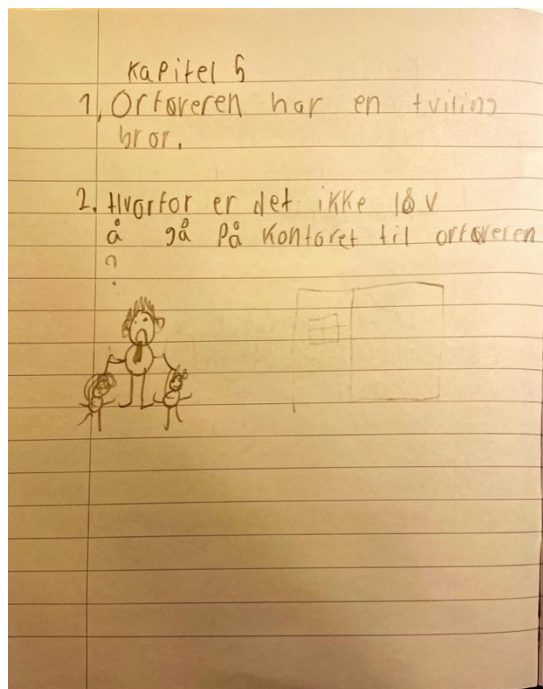 Kapitel 5
1, Ortøveren har en tviling
bror.
2. Hvorfor er det ikke låv
å gå på kontoret til ortøveren
?